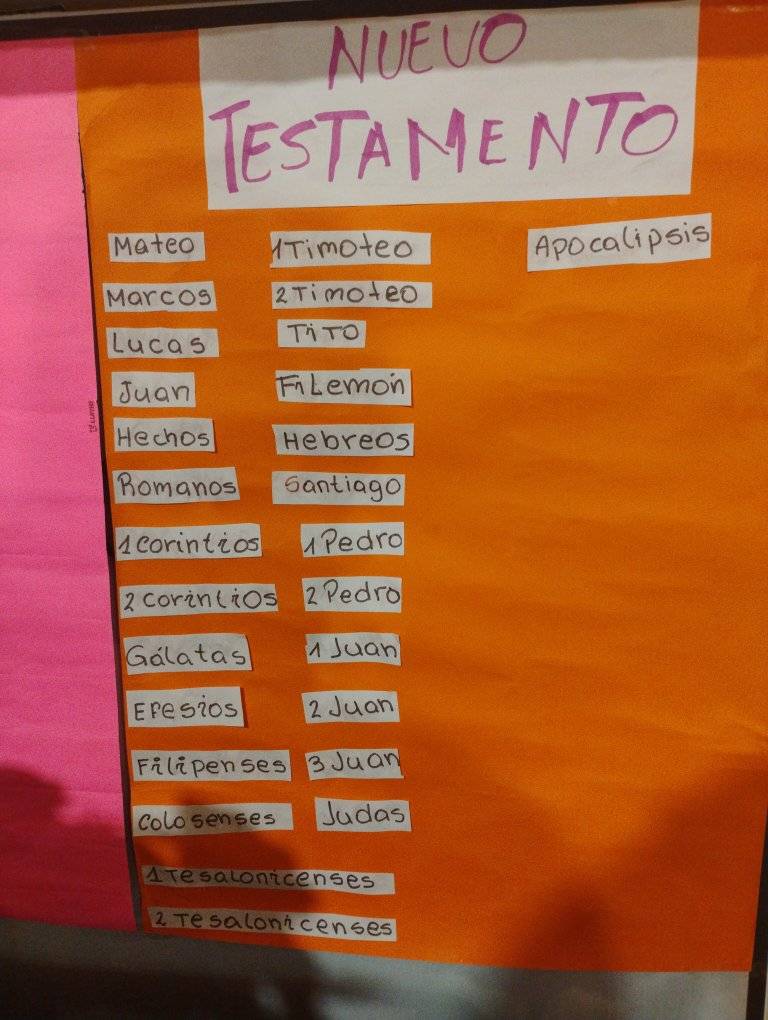 NUEVO
TESTAMENTO
Mateo
Marcos
Lucas
Juan
Hechos
Romanos
1 Corintios
2 Corintios
Gálatas
Efesios
Filipenses
Colosenses
1 Tesalonicenses
2 Tesalonicenses
1 Timoteo
2 Timoteo
Tito
Filemón
Hebreos
Santiago
1 Pedro
2 Pedro
1 Juan
2 Juan
3 Juan
Judas
Apocalipsis